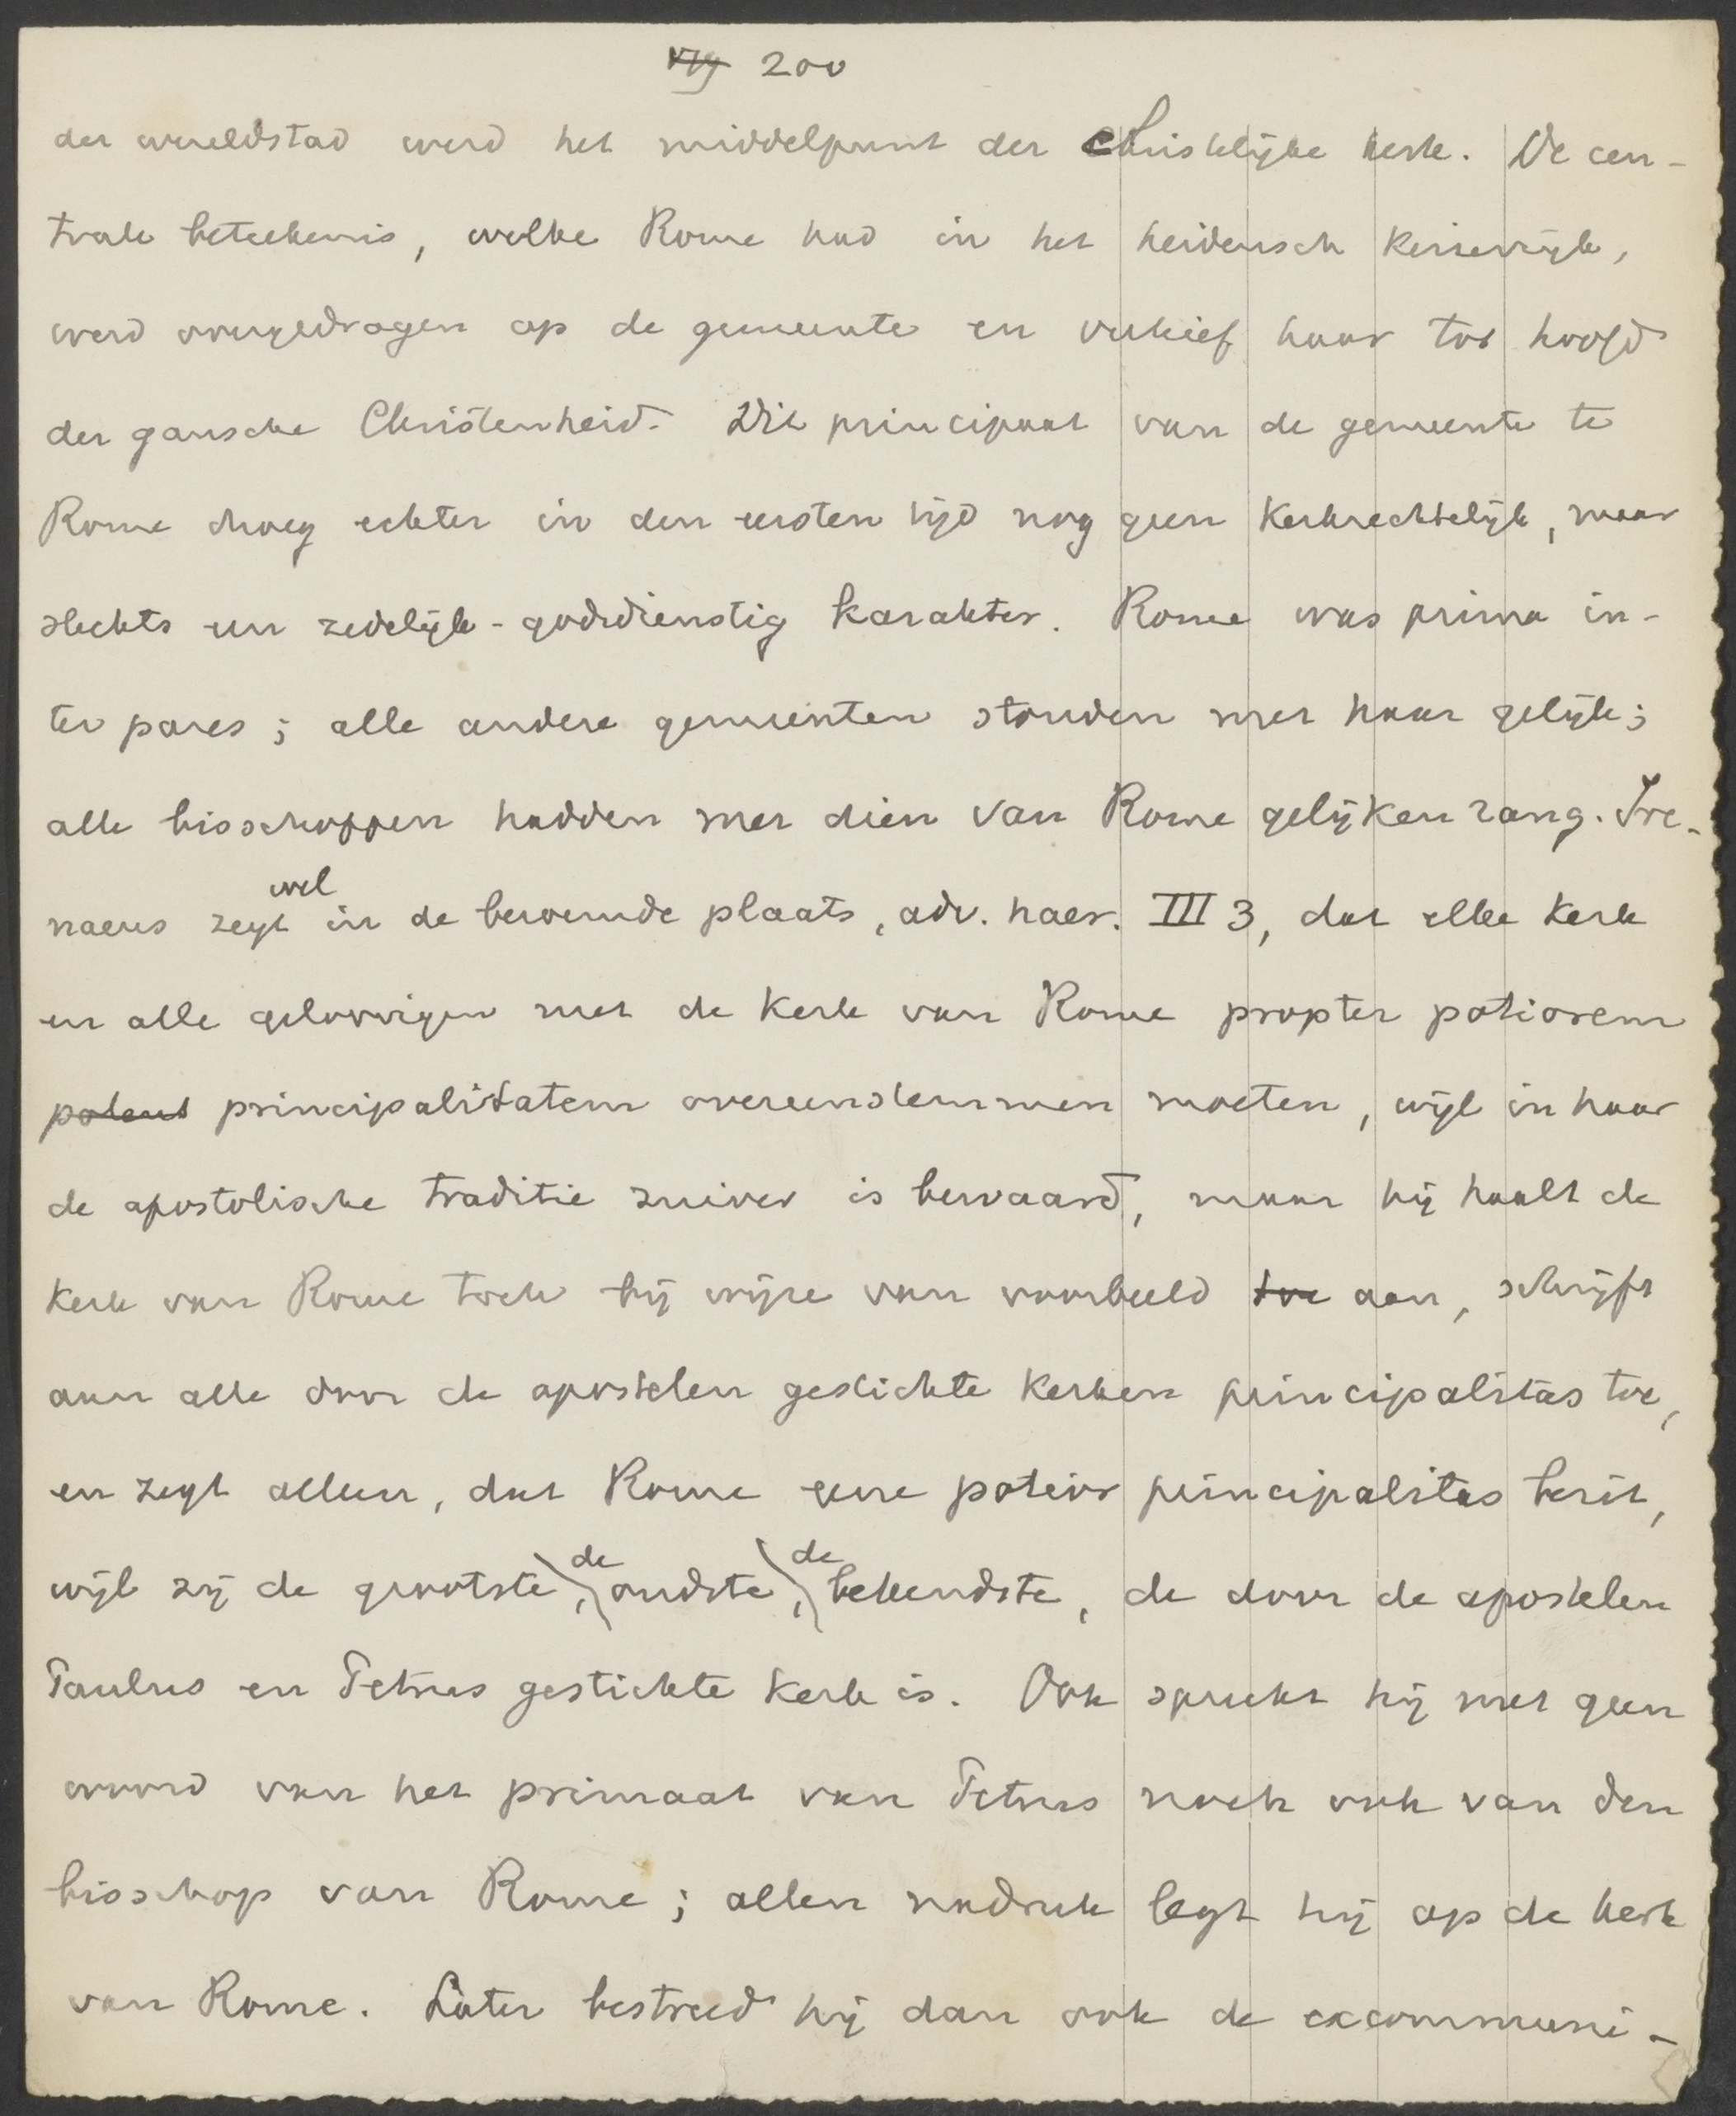 200
der wereldstad werd het middelpunt der Christelijke kerk. De cen-
trale beteekenis, welke Rome had in het heidensch keizerrijk,
werd overgedragen op de gemeente en verhief haar tot hoofd
der gansche Christenheid. Dit principaat van de gemeente te
Rome droeg echter in den eersten tijd nog geen kerkrechtelijk, maar
slechts een zedelijk-godsdienstig karakter. Rome was prima in-
ter pares; alle andere gemeenten stonden met haar gelijk;
alle bisschoppen hadden met dien van Rome gelijken rang. Ire-
naeus zegt wel in de beroemde plaats, adv. haer. III 3, dat elke kerk
en alle geloovigen met de kerk van Rome propter potiorem
potent principalitatem overeenstemmen moeten, wijl in haar
de apostolische traditie zuiver is bewaard, maar hij haalt de
kerk van Rome toch bij wijze van voorbeeld toe aan, schrijft
aan alle door de apostelen gestichte kerken principalitas toe,
en zegt alleen, dat Rome eene potior principalitas bezit,
wijl zij de grootste, de oudste, de bekendste, de door de apostelen
Paulus en Petrus gestichte kerk is. Ook spreekt hij met geen
woord van het primaat van Petrus noch ook van den
bisschop van Rome; allen nadruk legt hij op de kerk
van Rome. Later bestreed hij dan ook de excommuni-